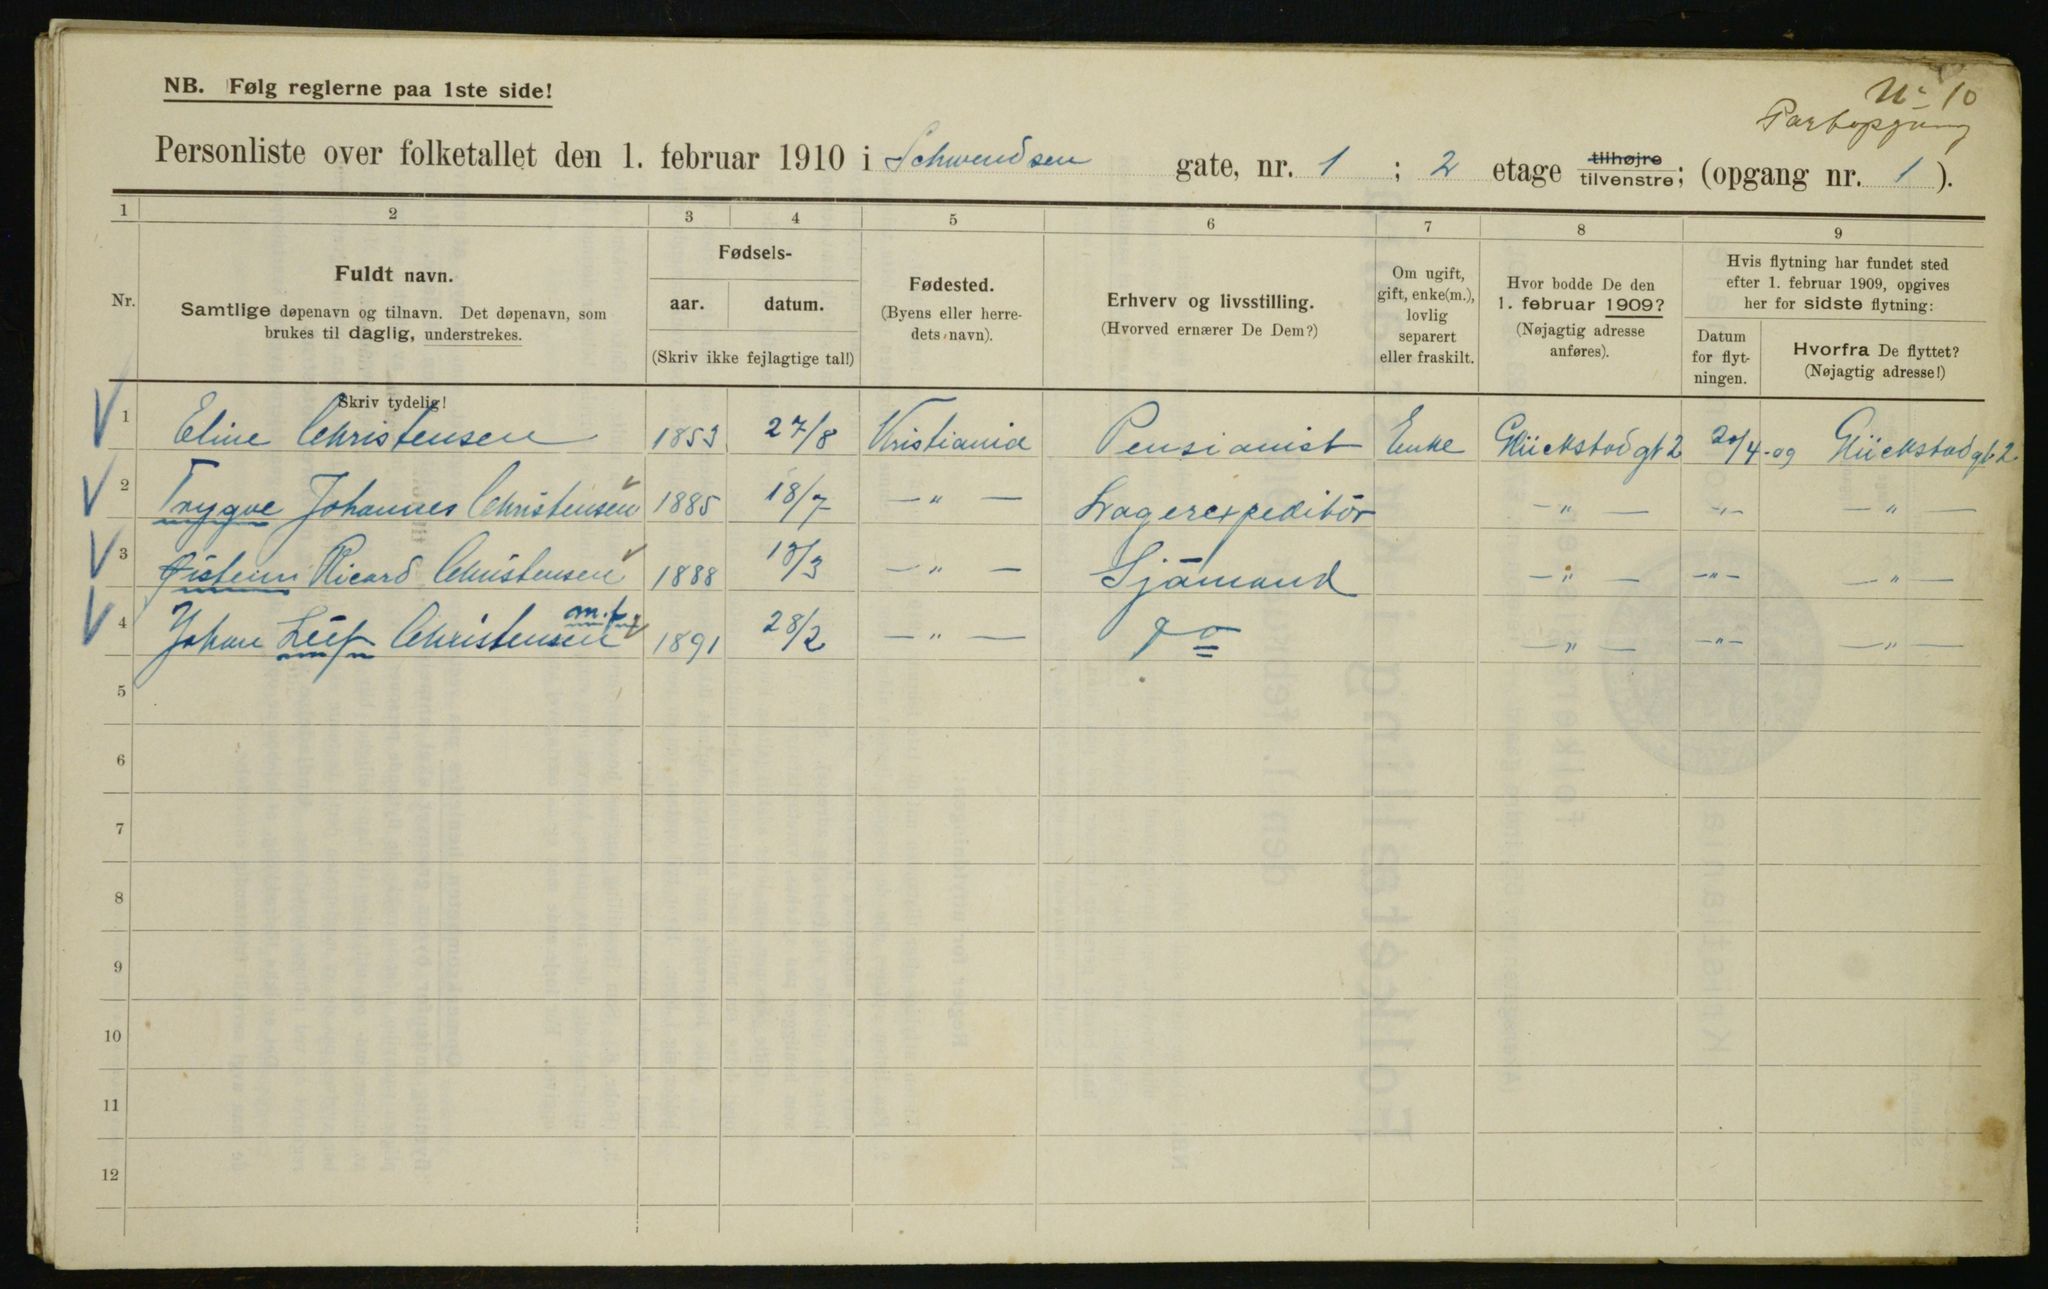 № 10
NB. Følg reglerne paa 1ste side!
Portopgang
Personliste over folketallet den 1. februar 1910 i Schwendsen gate, nr. 1 ; 2 etage tilhøjre tilvenstre; (opgang nr. 1 ).
1 2 3 4 5 6 7 8 9
Nr.
Fuldt navn.
Samtlige døpenavn og tilnavn. Det døpenavn, som
brukes til daglig, understrekes.
Skriv tydelig!
Fødsels-
aar. datum.
(Skriv ikke fejlagtige tal!)
Fødested.
(Byens eller herre-
dets navn).
Erhverv og livsstilling.
(Hvorved ernærer De Dem?)
Om ugift,
gift, enke(m.),
lovlig
separert
eller fraskilt.
Hvor bodde De den
1. februar 1909?
(Nøjagtig adresse
anføres).
Hvis flytning har fundet sted
efter 1. februar 1909, opgives
her for sidste flytning:
Datum
for flyt-
ningen.
Hvorfra De flyttet?
(Nøjagtig adresse!)
1 Eline Christensen 1853 27/8 Kristiania Pensianist Enke Glückstadgt 2 20/4-09 Glückstadgt 2
2 Trygve Johannes Christensen 1885 18/7 — " — Lagerexpeditör — " — -"- — " —
3 Øistein Ricard Christensen 1888 18/3 — " — Sjömand — " — -"- — " —
m.f.
4 Johan Leif Christensen 1891 28/2 — " — do — " — -"- — " —
5
6
7
8
9
10
11
12